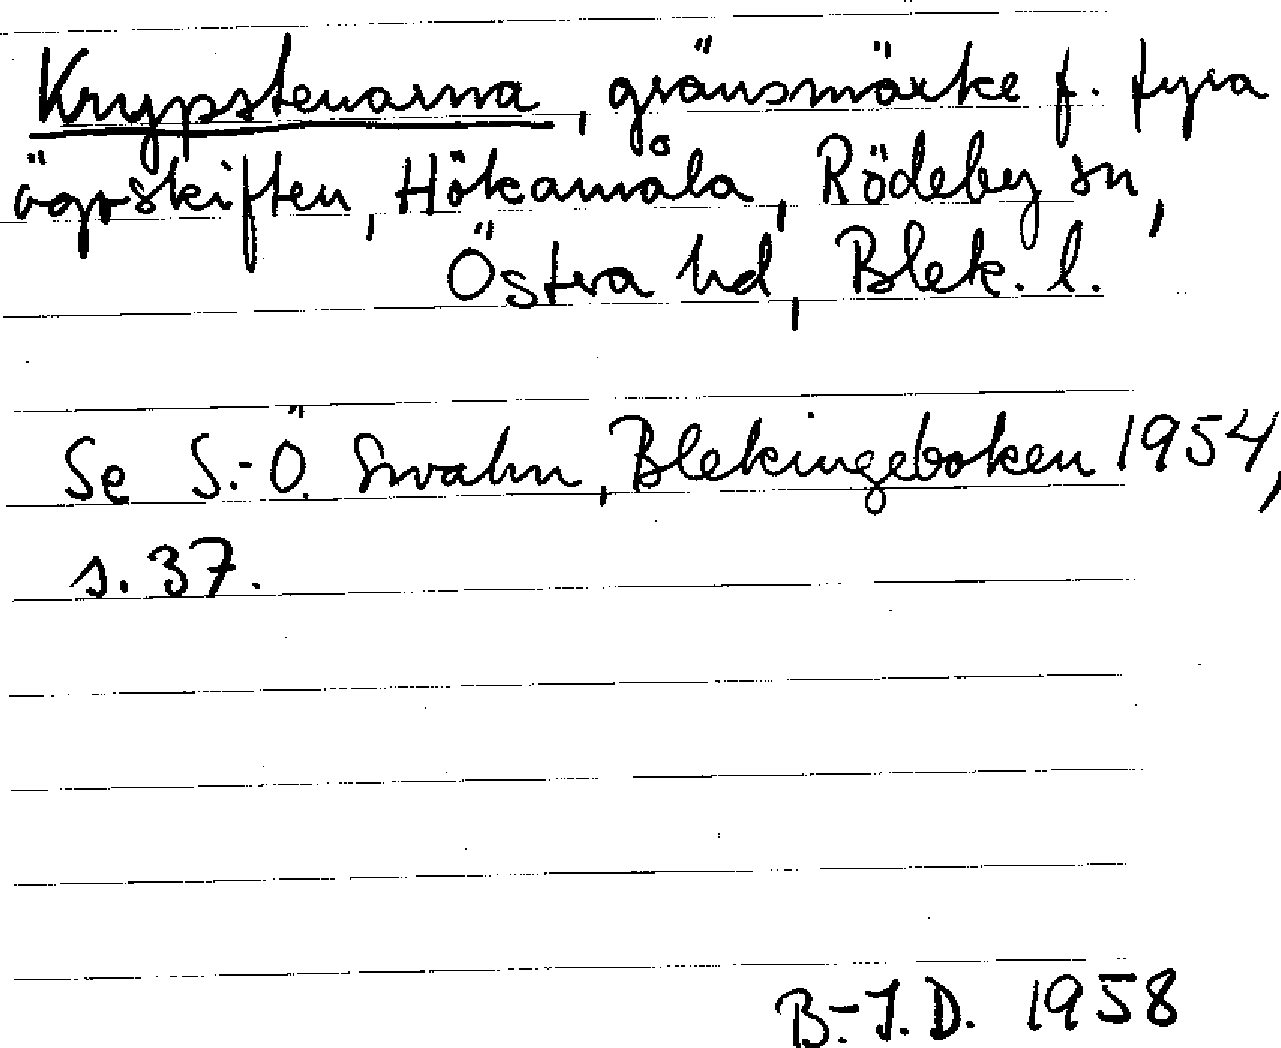 Krypstenarna, gränsmärke f. fyra
ägoskiften, Hökamåla, Rödeby sn,
Östra hd, Blek. l.
Se S.-Ö. Swahn, Blekingeboken 1954,
s. 37.
B.-J.D. 1958